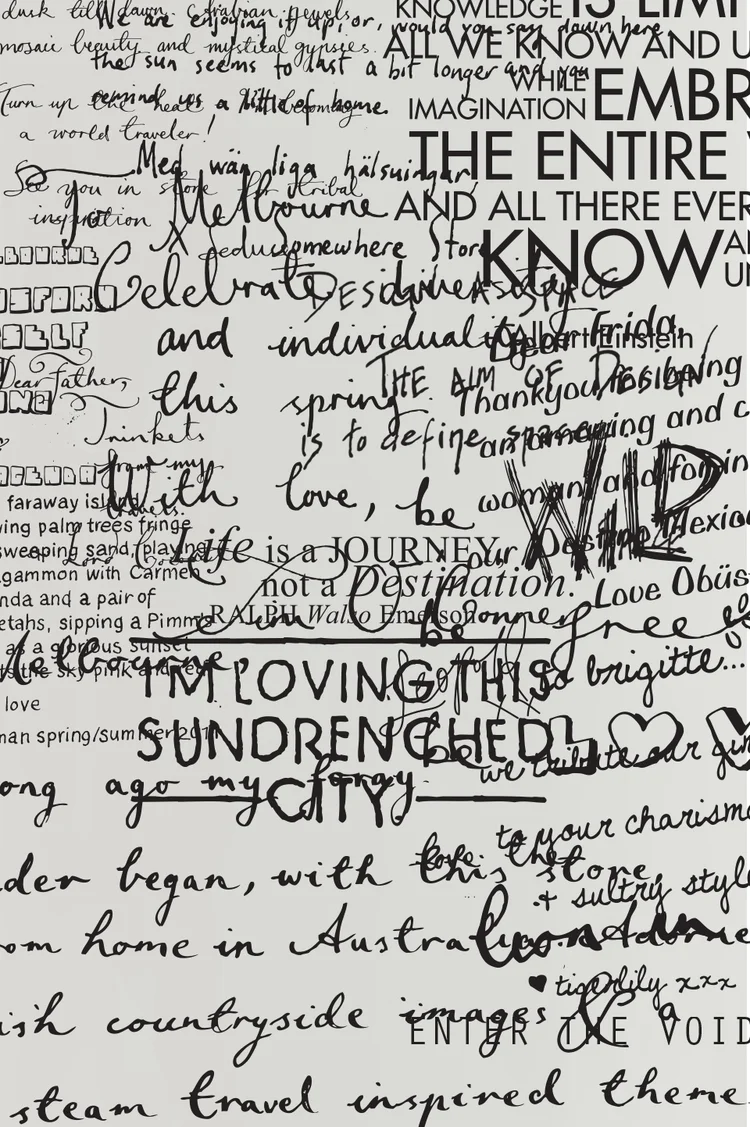 We are enjoying it up, or, would you say down here
dusk till dawn. Arabian jewels,
mosaic beauty and mystical gypsies.
the sun seems to last a bit longer and you
remind us a little of home.
Turn up the heat
a world traveler!
Med wän liga hälsningar,
See you in store for tribal
inspiration
Jo Melbourne
X
seduce
somewhere Store
KNOWLEDGE IS LIMI
ALL WE KNOW AND U
WHILE
IMAGINATION EMBR
THE ENTIRE
AND ALL THERE EVER
KNOW AN
UN
Albert Einstein
Celebrate
and individuality
this spring.
With love,
DESIGN AS SPACE
THE AIM OF DESIGN
is to define space
LBOURNE
SELF
Dear Father,
Trinkets
from my
travels.
Lord
faraway island
ving palm trees fringe
sweeping sand, playing
gammon with Carmen
nda and a pair of
etahs, sipping a Pimms
as a glorious sunset
ts the sky pink and red
love
man spring/summer 2011
Dear Frida,
Thankyou for being
an amazing and c
woman and for in
our Destino Mexico
Love Obüs
WIP
be
Life is a JOURNEY,
not a Destination.
RALPH Waldo Emerson
be
free
so brigitte...
be
Melbourne,
I'M LOVING THIS
SUNDRENCHED
CITY
L ♡ V
we tribute our gir
to your charisma
+ sultry style
♥ tigerlily xxx
love the
London
ong ago my foray
der began, with this store,
om home in Australia. Adorne
ish countryside images & a
steam travel inspired theme
ENTER THE VOID